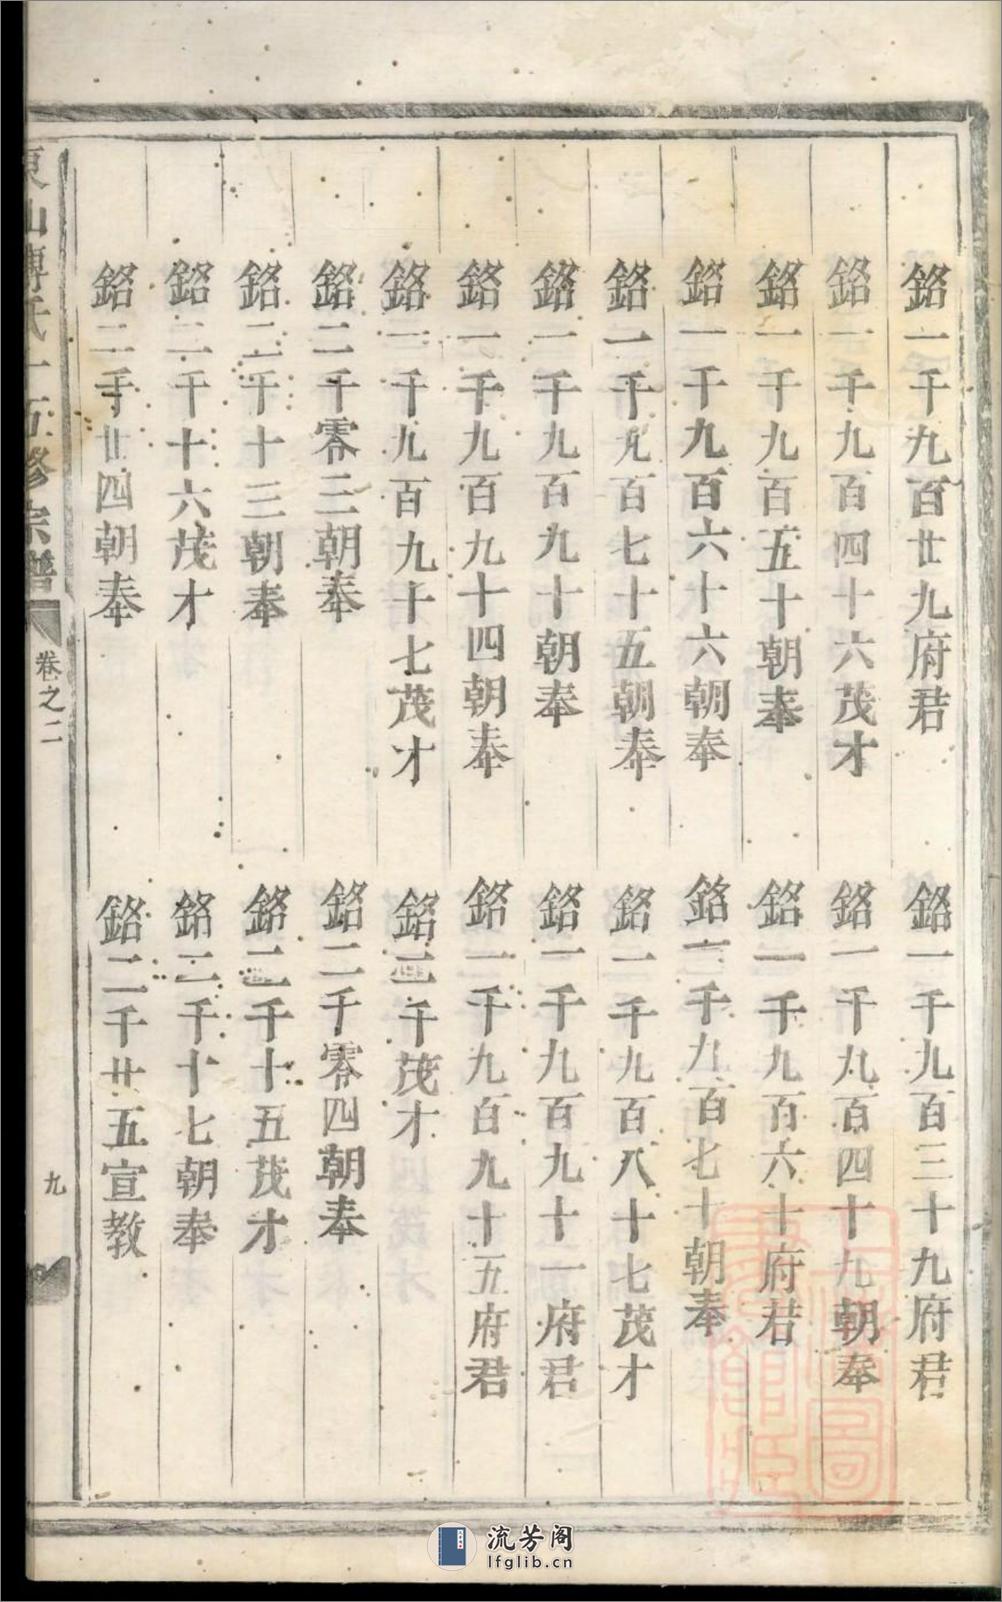 銘一千九百廿九府君
銘一千九百三十九府君
銘一千九百四十六茂才
銘一千九百四十九朝奉
銘一千九百五十朝奉
銘一千九百六十府君
銘一千九百六十六朝奉
銘一千九百七十朝奉
銘一千九百七十五朝奉
銘一千九百八十七茂才
銘一千九百九十朝奉
銘一千九百九十一府君
銘一千九百九十四朝奉
銘一千九百九十五府君
銘一千九百九十七茂才
銘二千茂才
銘二千零三朝奉
銘二千零四朝奉
銘二千十三朝奉
銘二千十五茂才
銘二千十六茂才
銘二千十七朝奉
銘二千廿四朝奉
銘二千廿五宣教
東山傅氏十五修宗譜
卷之二
九
流芳阁
lfglib.cn